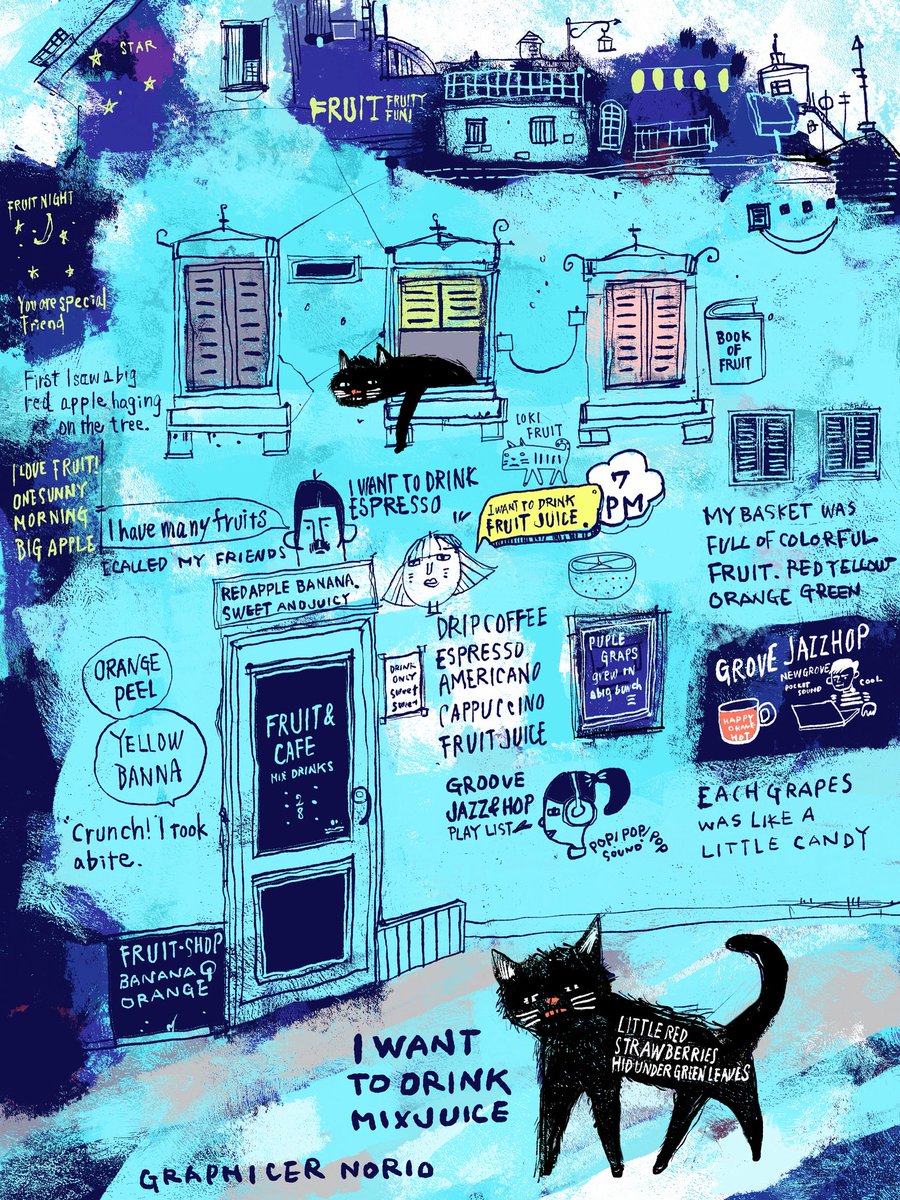 STAR
FRUIT FRUITY
FUN!
FRUIT NIGHT
You are special
Friend
First I saw a big
red apple, haging
on the tree.
I LOVE FRUIT!
ONE SUNNY
MORNING
BIG APPLE
BOOK
OF
FRUIT
IOKI
FRUIT
I have many fruits
I CALLED MY FRIENDS
I WANT TO DRINK
ESPRESSO
I WANT TO DRINK
FRUIT JUICE
7
PM
MY BASKET WAS
FULL OF COLORFUL
FRUIT. RED YELLOUT
ORANGE GREEN
RED APPLE BANANA.
SWEET AND JUICY
ORANGE
PEEL
YELLOW
BANNA
"Crunch! I took
a bite.
FRUIT &
CAFE
MIX DRINKS
2
8
DRINK
ONLY
sweet
DRIP COFFEE
ESPRESSO
AMERICANO
CAPPUCCINO
FRUIT JUICE
PUPLE
GRAPS
grew in
a big bunch
GROVE JAZZHOP
NEW GROVE
POCKET
SOUND
COOL
HAPPY
HOT
GROOVE
JAZZ&HOP
PLAY LIST
POP! POP! POP
SOUND
EACH GRAPES
WAS LIKE A
LITTLE CANDY
FRUIT-SHOP
BANANA
ORANGE
LITTLE RED
STRAWBERRIES
HID UNDER GREEN LEAVES
I WANT
TO DRINK
MIXJUICE
GRAPHICER NORIO